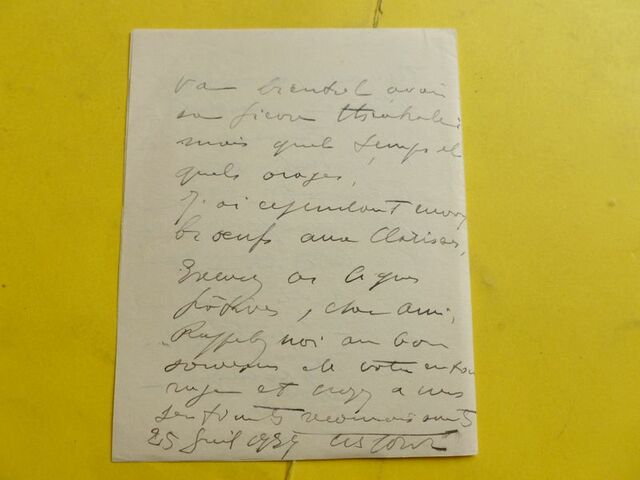 va bientôt avoir
sa fièvre
mais quel temps et
quels orages,
J'ai cependant envoyé
bœufs aux Clarisses,
Excusez ces lignes
hâtives, cher ami,
Rappelez moi au bon
souvenir de votre entou
rage et croyez a mes
sentiments reconnaissants
25 Juil 1939